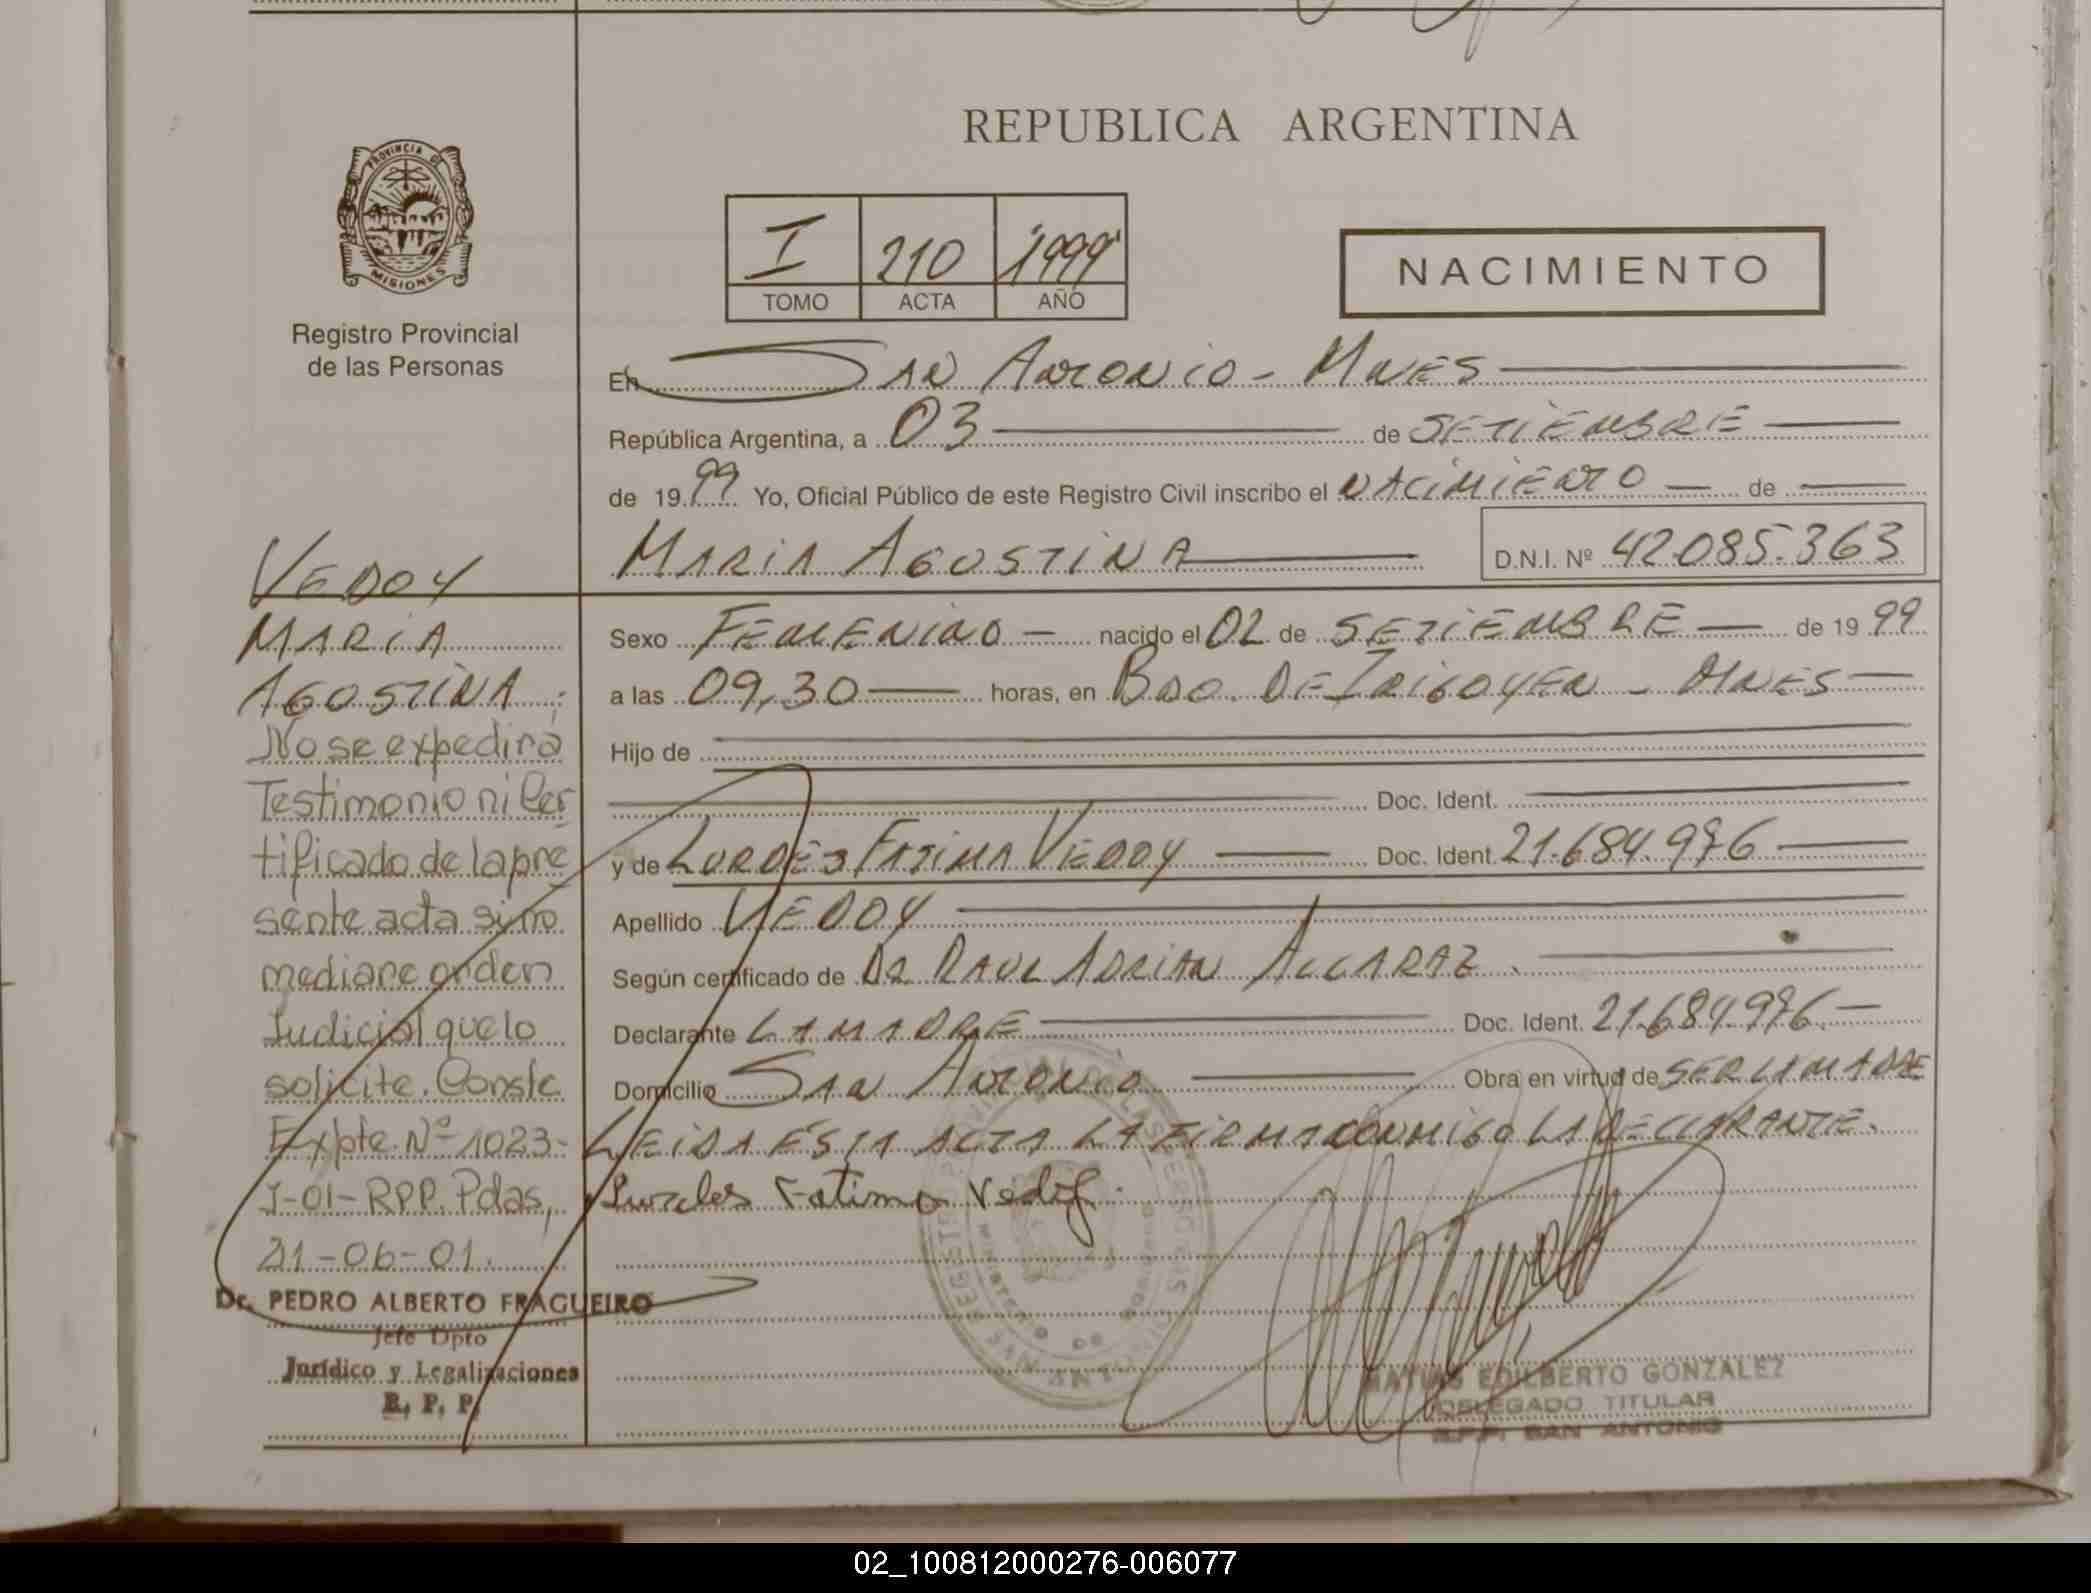 REPUBLICA ARGENTINA
PROVINCIA DE
MISIONES
Registro Provincial
de las Personas
I 210 1999
TOMO ACTA AÑO
NACIMIENTO
En SAN ANTONIO - MNES
República Argentina, a 03 de SETIEMBRE
de 1999 Yo, Oficial Público de este Registro Civil inscribo el NACIMIENTO de
MARIA AGOSTINA D.N.I. Nº 42.085.363
Sexo FEMENINO nacido el 02 de SETIEMBRE de 1999
a las 09,30 horas, en BDO. DE IRIGOYEN - MNES
Hijo de
Doc. Ident.
y de LURDES FATIMA VEDOY Doc. Ident. 21.684.976
Apellido VEDOY
Según certificado de DR RAUL ADRIAN ALCARAZ
Declarante LA MADRE Doc. Ident. 21.684.976
Domicilio SAN ANTONIO Obra en virtud de SER LA MADRE
LEIDA ESTA ACTA LA FIRMA CONMIGO LA DECLARANTE.
Lurdes Fatima Vedoy
MATIAS EDILBERTO GONZALEZ
DELEGADO TITULAR
R.P.P. SAN ANTONIO
VEDOY
MARIA
AGOSTINA
No se expedirá
Testimonio ni Cer
tificado de la pre
sente acta sino
mediare orden
Judicial que lo
solicite. Conste
Expte. Nº 1023-
J-01-RPP. Pdas,
21-06-01.
Dr. PEDRO ALBERTO FRAGUEIRO
Jefe Dpto
Jurídico y Legalizaciones
R. P. P.
02_100812000276-006077